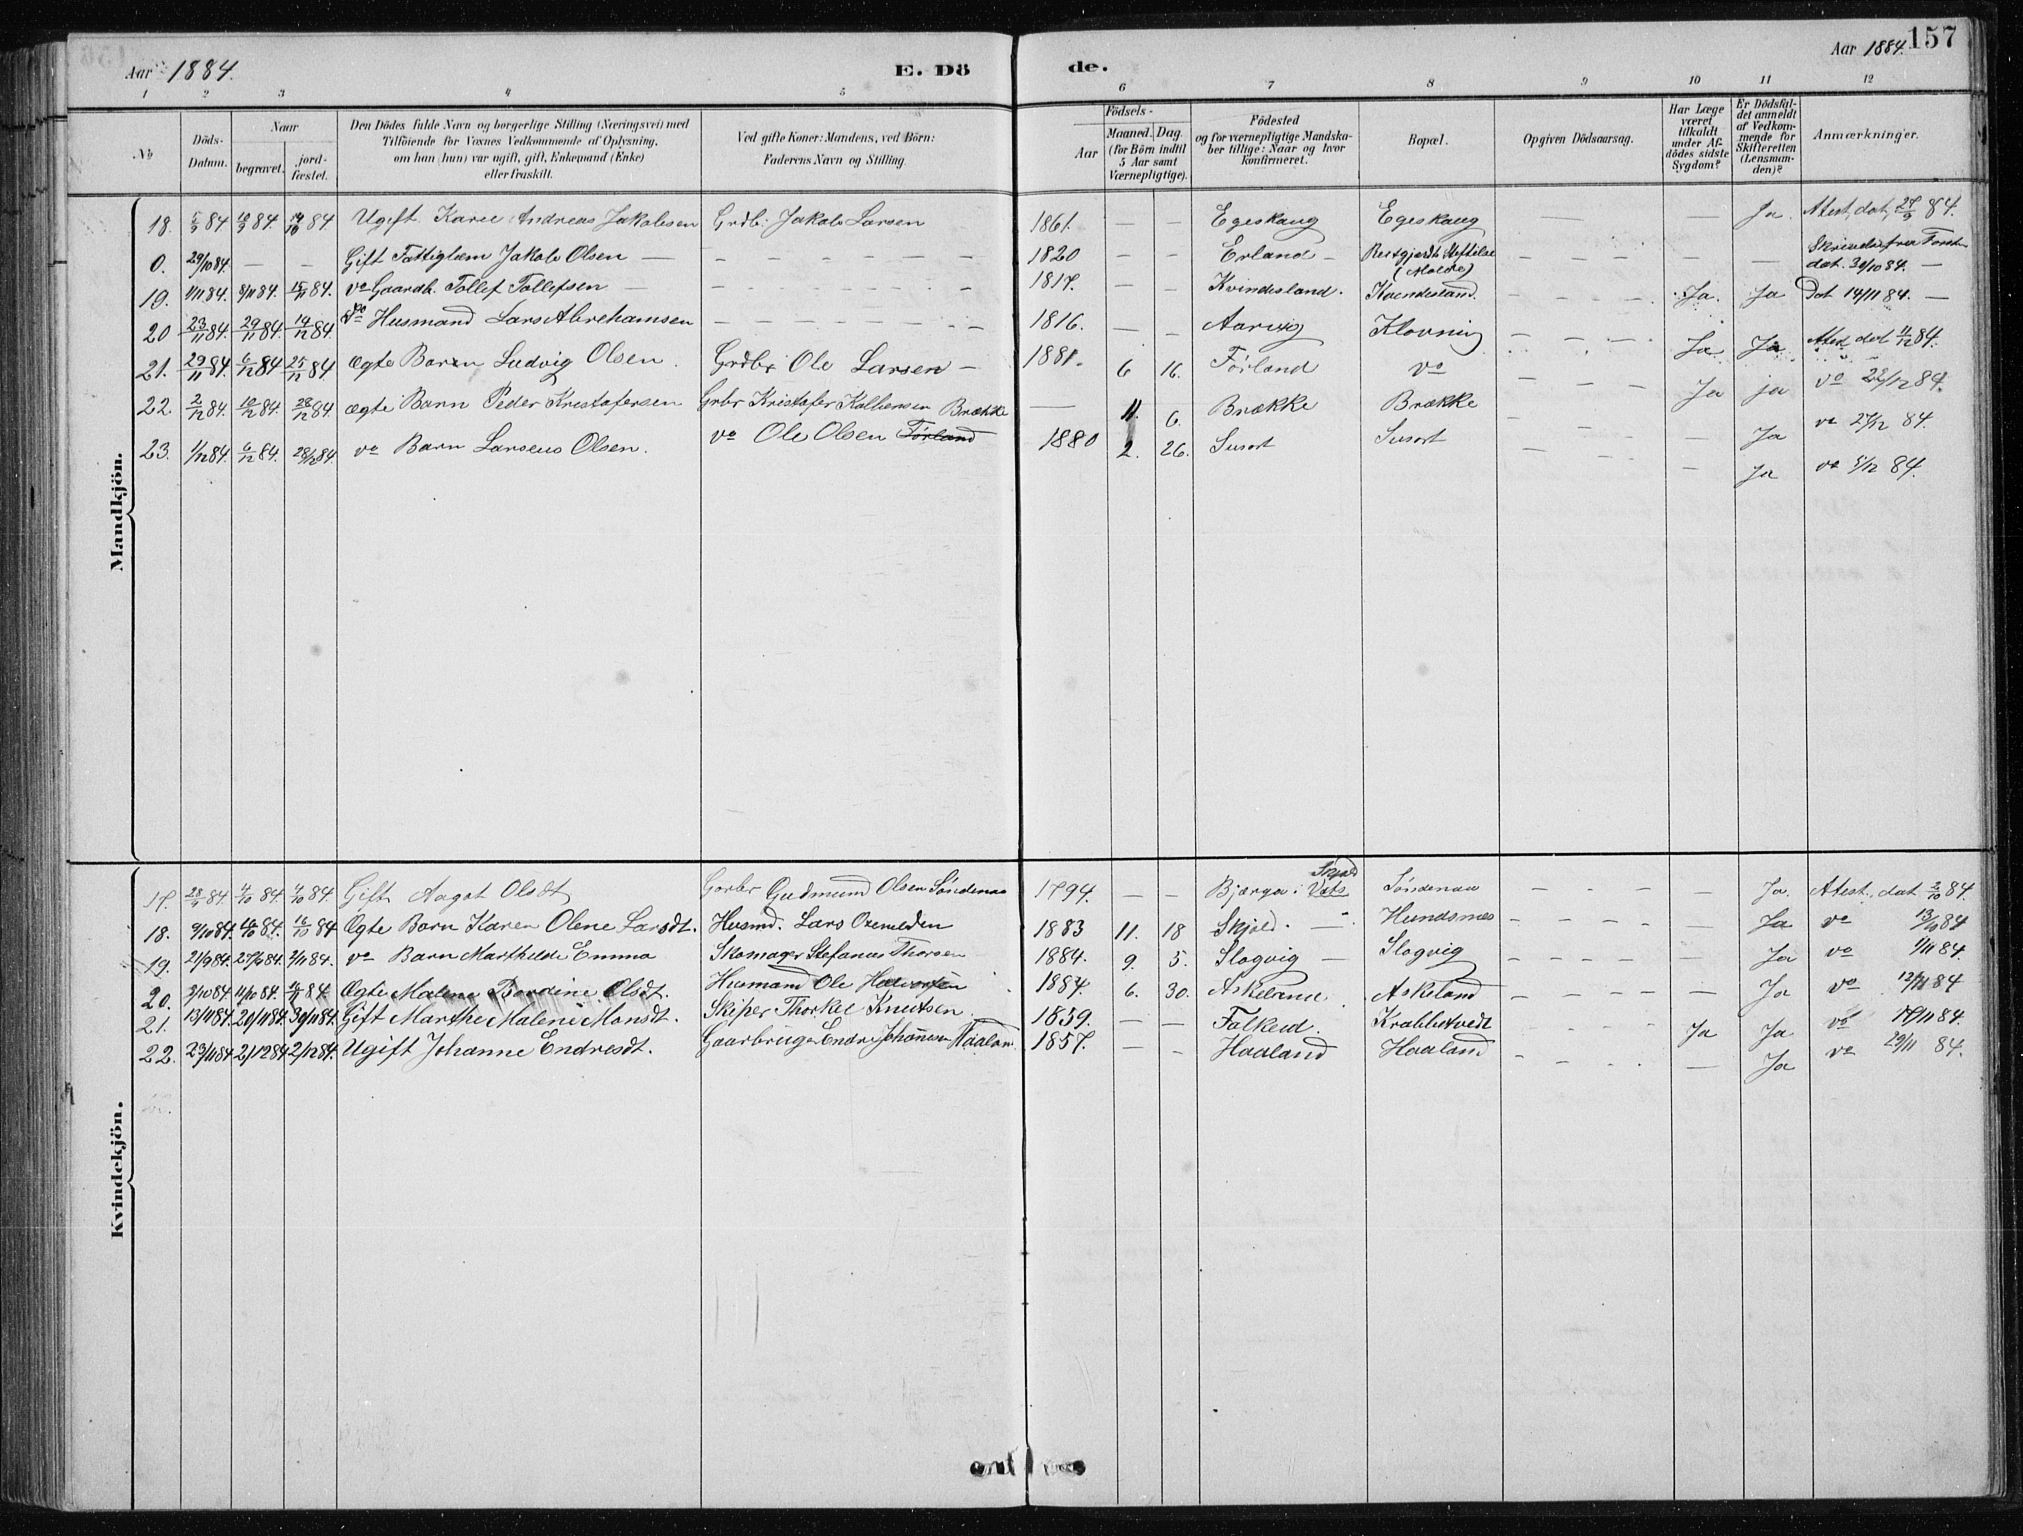 Aar 1884. E. Dö de. Aar 1884. 157
1 2 3 4 5 6 7 8 9 10 11 12
No
Döds-Datum.
Naar
begravet.
jord-fæstet.
Den Dödes fulde Navn og borgerlige Stilling (Næringsvei) med
Tilföiende for Voxnes Vedkommende af Oplysning,
om han (hun) var ugift, gift, Enkemand (Enke)
eller fraskilt.
Ved gifte Koner: Mandens, ved Börn:
Faderens Navn og Stilling.
Födsels-
Aar
Maaned. Dag.
(for Börn indtil
5 Aar samt
Værnepligtige).
Födested
og for værnepligtige Mandska-
ber tillige: Naar og hvor
konfirmeret.
Bopæl.
Opgiven Dödsaarsag.
Har Læge
været
tilkaldt
under Af-
dödes sidste
Sygdom?
Er Dödsfal-
det anmeldt
af Vedkom-
mende for
Skifteretten
(Lensman-
den)?
Anmærkninger.
Mandkjön.
18. 5/9 84 10/9 84. 19/10 84 Ugift Andreas Jakobsen Grdb: Jakob Larsen 1861. — — Egeskaug Egeskaug Ja. Atest, dat, 27/9 84.
0. 29/10 84. — — Gift Fattiglem Jakob Olsen — 1820 Erland — (Molde) — dat. 30/10 84. —
19. 1/11 84. 8/11 84. 15/11 84. vo Gaardb. Tollef Tollefsen — 1817. Kvindesland. Ja. Ja Dat 14/11 84. —
20 23/11 84. 29/11 84. 14/12 84. vo Husmand Lars Abrehamsen 1816. — — Aarvig Klovning Ja Ja Atest dat 11/12 84.
21. 29/11 84. 6/12 84 25/12 84. ægte Barn Ludvig Olsen. Grdbr Ole Larsen — 1881. 6 16. Förland vo Ja ja vo 22/12 84.
22 2/12 84. 10/12 84. 28/12 84 ægte Barn Peder Kristofersen Grbr Kristofer Brække — 11. 6. Brække Brække Ja vo 27/12 84.
23. 1/12 84. 6/12 84. 28/12 84 vo Barn Larsens Olsen. vo Ole Olsen Förland 1880 2. 26. Susort Susort — Ja vo 5/12 84.
Kvindekjön.
17. 28/9 84 4/10 84. 4/10 84. Gift Aagot Olsdt Gorbr Gudmund Olsen Söndenaa 1794. — — Bjærga i Skjold Vats Söndenaa — Ja. Atest, dat 2/10 84.
18. 9/10 84. 16/10 84. 16/10 84 Ægte Barn Karen Olene Larsdt. Husmd. Lars 1883 11. 18 Skjold. — Hundsnes — Ja vo 13/10 84
19. 27/9 84 2/11 84. vo Barn Marthelde Emma Skomager Stefanus Thorsen 1884. 9. 5. Slogvig — Slogvig — Ja vo 1/11 84.
20. 3/10 84 11/10 84. Ægte Malene Bordine Olsdt. Husmand Ole Halvorsen 1884. 6. 30. Askeland — Ja vo 12/11 84
21. 13/11 84. 20/11 84. 30/11 84. Gift Marthe Malene Monsdt. Skiper Thorkel Knutsen 1859. — — Falkeid. Krabbetvedt Ja Ja vo 19/11 84.
22. 23/11 84 2/12 84 2/12 84. Ugift Johanne Endresdt. Gaarbruger Endre Johannesen Haaland 1857. — — Haaland Haaland — Ja vo 29/11 84.